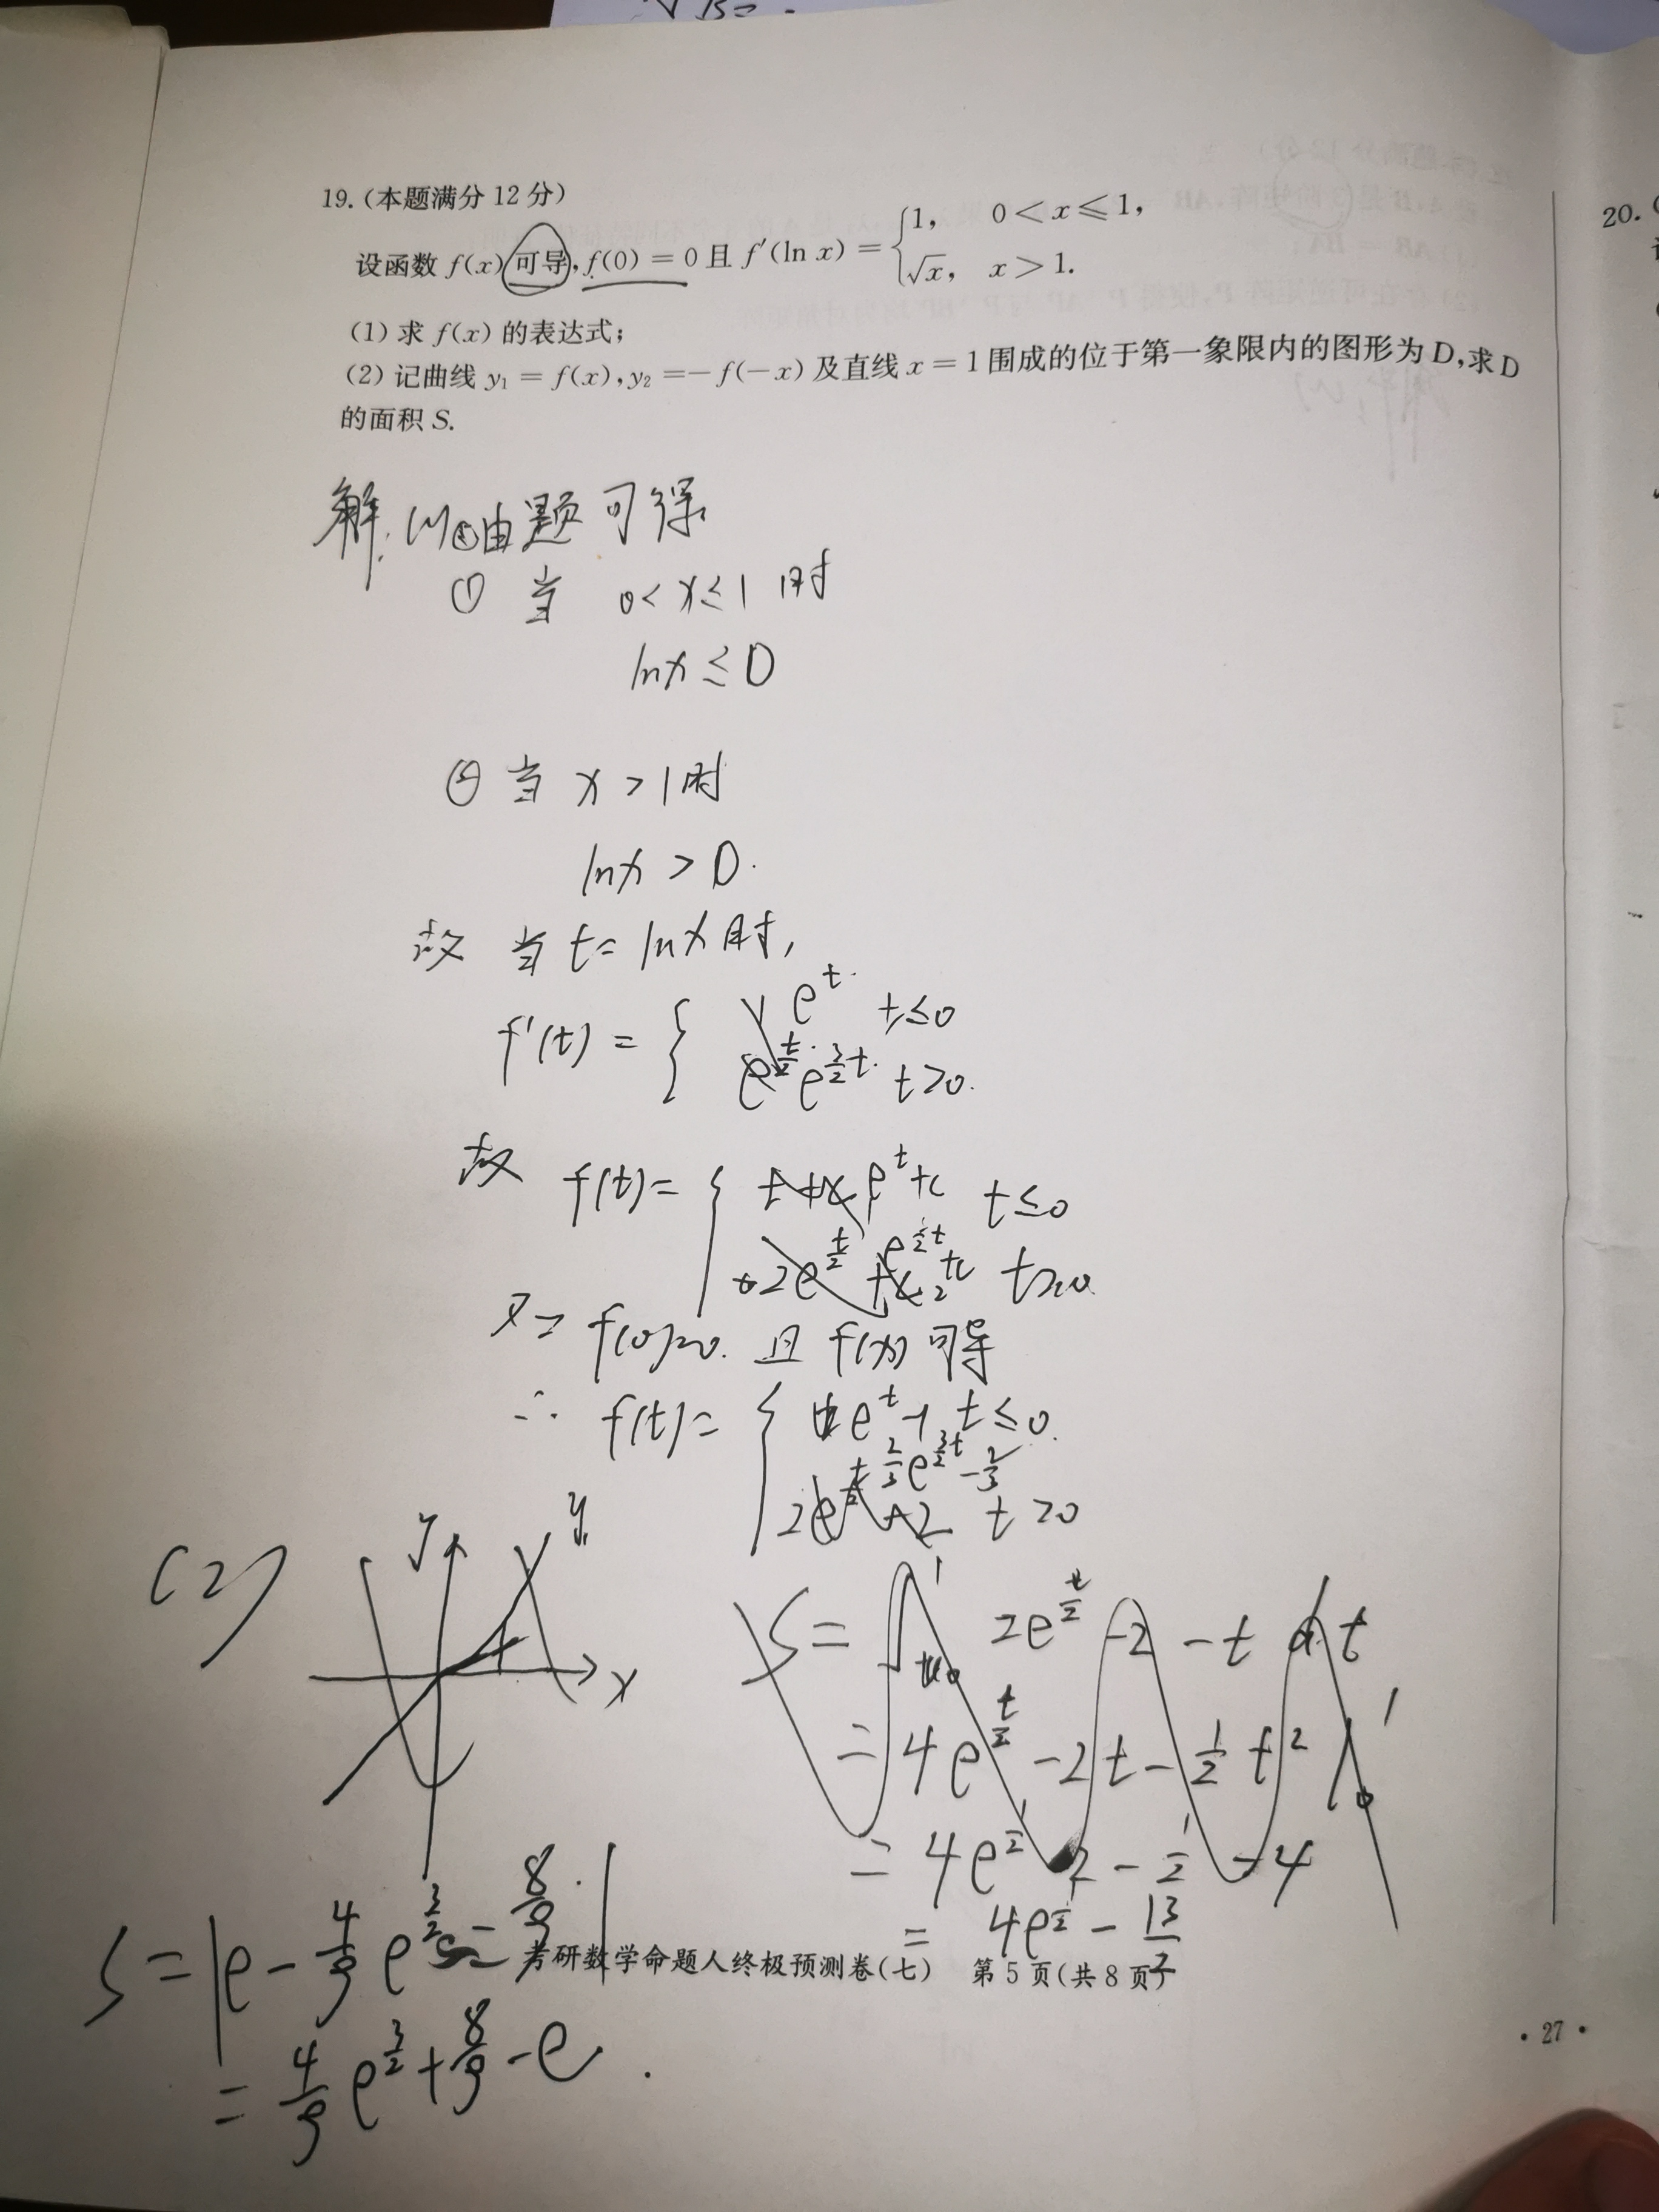 19.(本题满分12分)
设函数 f(x)可导,f(0)=0且 f′(ln x)={1, 0<x≤1,
√x, x>1.
(1)求 f(x)的表达式;
(2)记曲线 y₁=f(x),y₂=-f(-x)及直线 x=1围成的位于第一象限内的图形为D,求D
的面积 S.
20.
解:(1)由题可得
① 当 0<x≤1时
lnx≤0
② 当 x>1时
lnx>0.
故 当t=lnx时,
f'(t)={ e^t t≤0
e^{3/2 t} t>0.
故 f(t)={ e^t+c t≤0
t>0
又∵ f(0)=0. 且 f(x)可导
∴ f(t)={ e^t-1 t≤0.
2/3 e^{3/2 t}-2/3
t>0
(2)
y
y₁
x
S=∫₀¹ 2e^{t/2}-2-t dt
=4e^{t/2}-2t-1/2 t² |₀¹
=4e^{1/2}-2-1/2-4
=4e^{1/2}-13/2
S=|e-4/9 e^{3/2}-8/9|
=4/9 e^{3/2}+8/9-e.
考研数学命题人终极预测卷(七) 第5页(共8页)
·27·